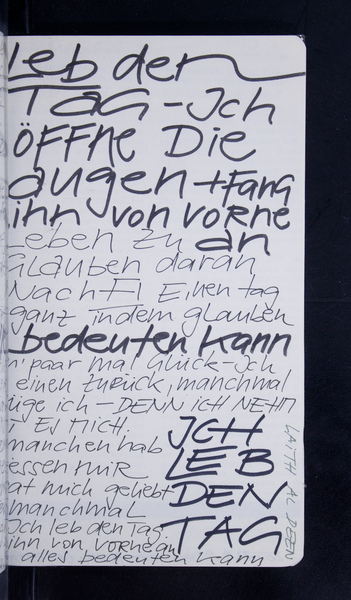 Leb den
TAG - Ich
ÖFFNE Die
augen + FANG
ihn von vorne
Leben zu an
Glauben daran
Einen tag
ganz indem glauben
bedeuten kann
n' paar mal Glück - Ich
einen zurück, manchmal
üge ich - DENN ICH NEHM
ES MICH.
manchen hab
essen mir
at mich geliebt
manchmal
Ich leb den Tag.
ihn von vorne an
alles bedeuten kann
ICH
LEB
DEN
TAG
LAITH AL DEEN